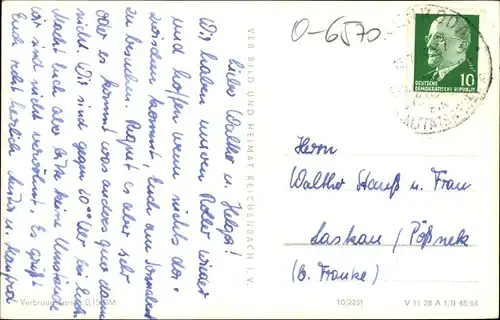 O-6570
Liebe Walther u. Helga!
Wir haben unseren Roller wieder
und hoffen wenn nichts da-
zwischen kommt, Euch am Sonnabend
zu besuchen. Regnet es aber sehr
oder es kommt was anderes quer dann
nicht. Wir sind gegen 10 Uhr bei Euch.
Macht Euch aber bitte keine Umstände
wir sind nicht verwöhnt. Es grüßt
Euch recht herzlich u. Manfred
VEB BILD UND HEIMAT REICHENBACH I. V.
10
DEUTSCHE
DEMOKRATISCHE REPUBLIK
Herrn
Walther u. Frau
Laskau / Pößneck
(b. Franke)
Verbraucherpreis 0,15 DM
10/2231
V 11 28 A 1/B 48/64